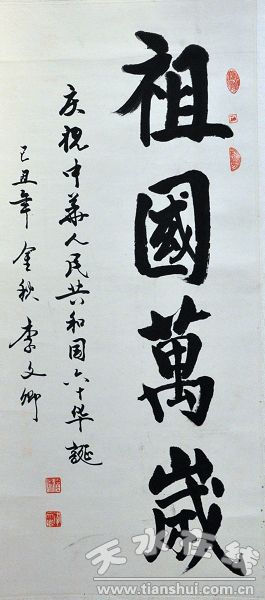 祖國萬歲
庆祝中华人民共和国六十华诞
己丑年金秋李文卿
天水在线
www.tianshui.com.cn